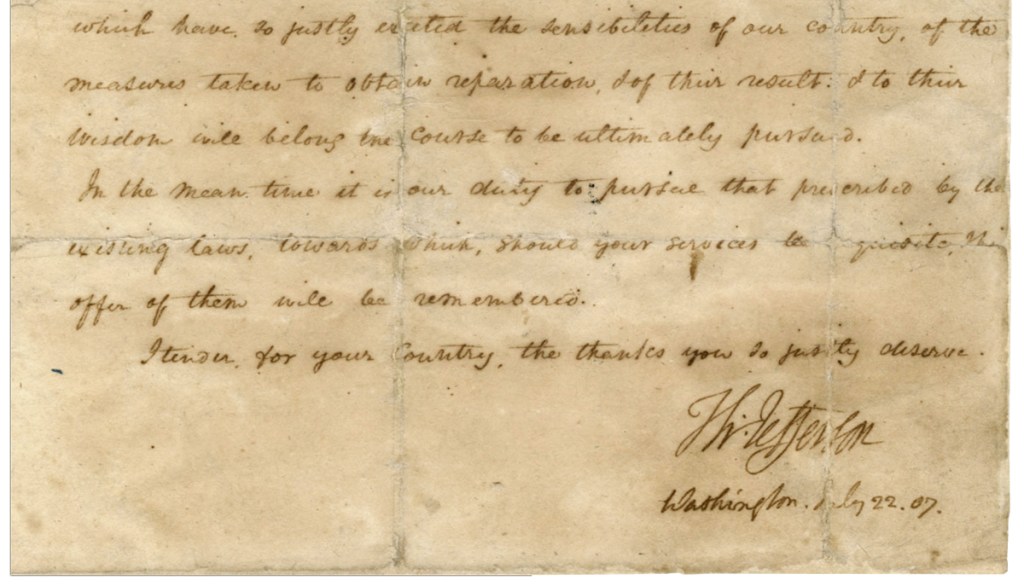 which have so justly excited the sensibilities of our country, of the
measures taken to obtain reparation, & of their result: & to their
wisdom will belong the course to be ultimately pursued.
In the mean time it is our duty to pursue that prescribed by the
existing laws, towards which, should your services be requisite, the
offer of them will be remembered.
I tender, for your Country, the thanks you so justly deserve.
Th: Jefferson
Washington. July 22. 07.